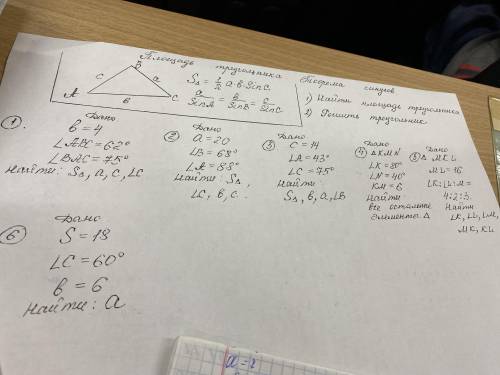 Площадь треугольника
Теорема синусов
B
c
a
A
C
в
S△ = 1/2 a·в·SinC
a/SinA = в/SinB = c/SinC
1) Найти площадь треугольника
2) Решить треугольник
①. Дано
в = 4
∠ABC = 62°
∠BAC = 75°
Найти: S△, a, c, ∠C
② Дано
a = 20
∠B = 68°
∠A = 88°
Найти: S△,
∠C, в, c.
③ Дано
C = 14
∠A = 43°
∠C = 75°
Найти:
S△, в, a, ∠B
④ Дано
△KMN
∠K = 80°
∠N = 40°
KM = 6
Найти
все остальные
элементы △
⑤ Дано
△ MKL
ML = 16
∠K:∠L:∠M =
4:2:3.
Найти
∠K, ∠L, ∠M,
MK, KL
⑥ Дано
S = 18
∠C = 60°
в = 6
Найти: a
a =